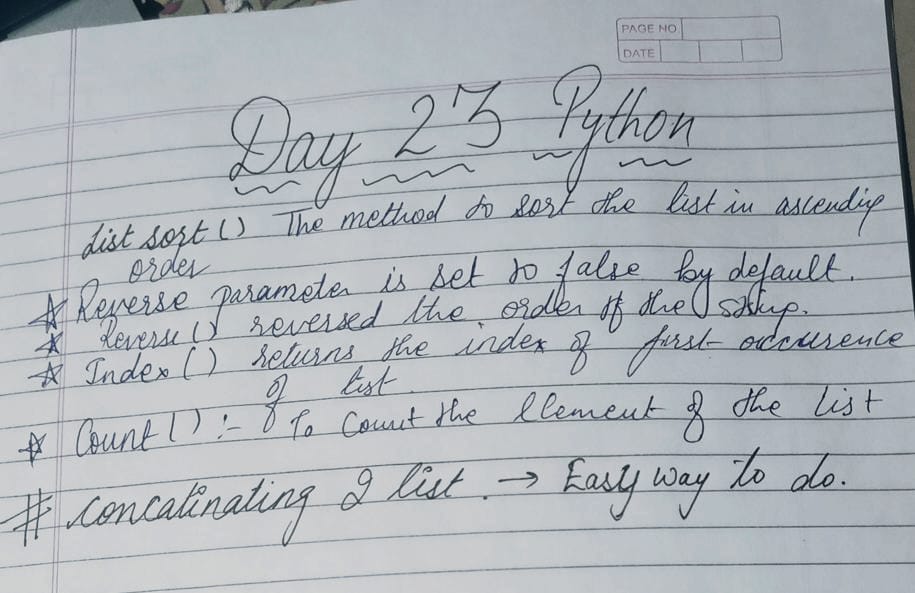 PAGE NO
DATE
Day 23 Python
List sort () The method to sort the list in ascending
order
☆ Reverse parameter is set to false by default.
☆ Reverse () reversed the order of the
☆ Index () returns the index of first occurrence
of list.
☆ Count () :- To Count the Element of the list
# concatinating 2 list. → Easy way to do.